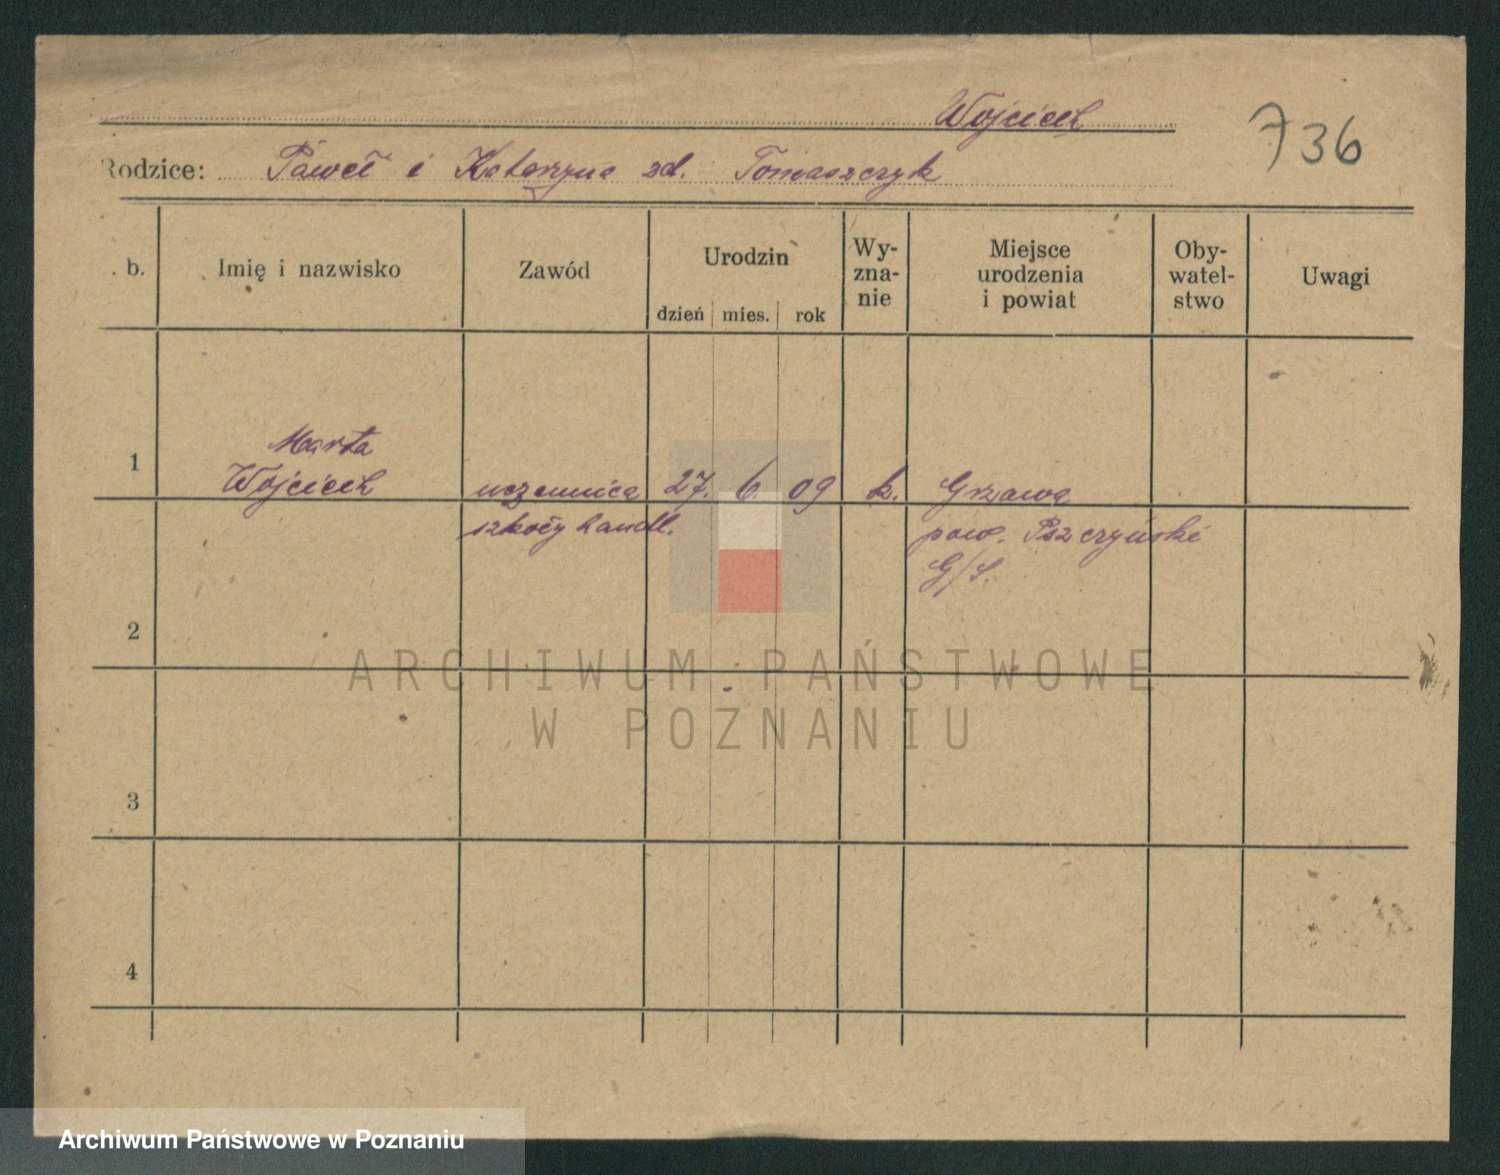 Wojciech
736
Rodzice: Paweł i Katarzyna zd. Tomaszczyk
. b. Imię i nazwisko Zawód Urodzin dzień mies. rok Wy-
zna-
nie Miejsce
urodzenia
i powiat Oby-
watel-
stwo Uwagi
1 Marta
Wojciech uczennica 27. 6. 09 k. Grzawa
szkoły handl. pow. Pszczyński
G/S.
2
3
4
ARCHIWUM PAŃSTWOWE
W POZNANIU
Archiwum Państwowe w Poznaniu